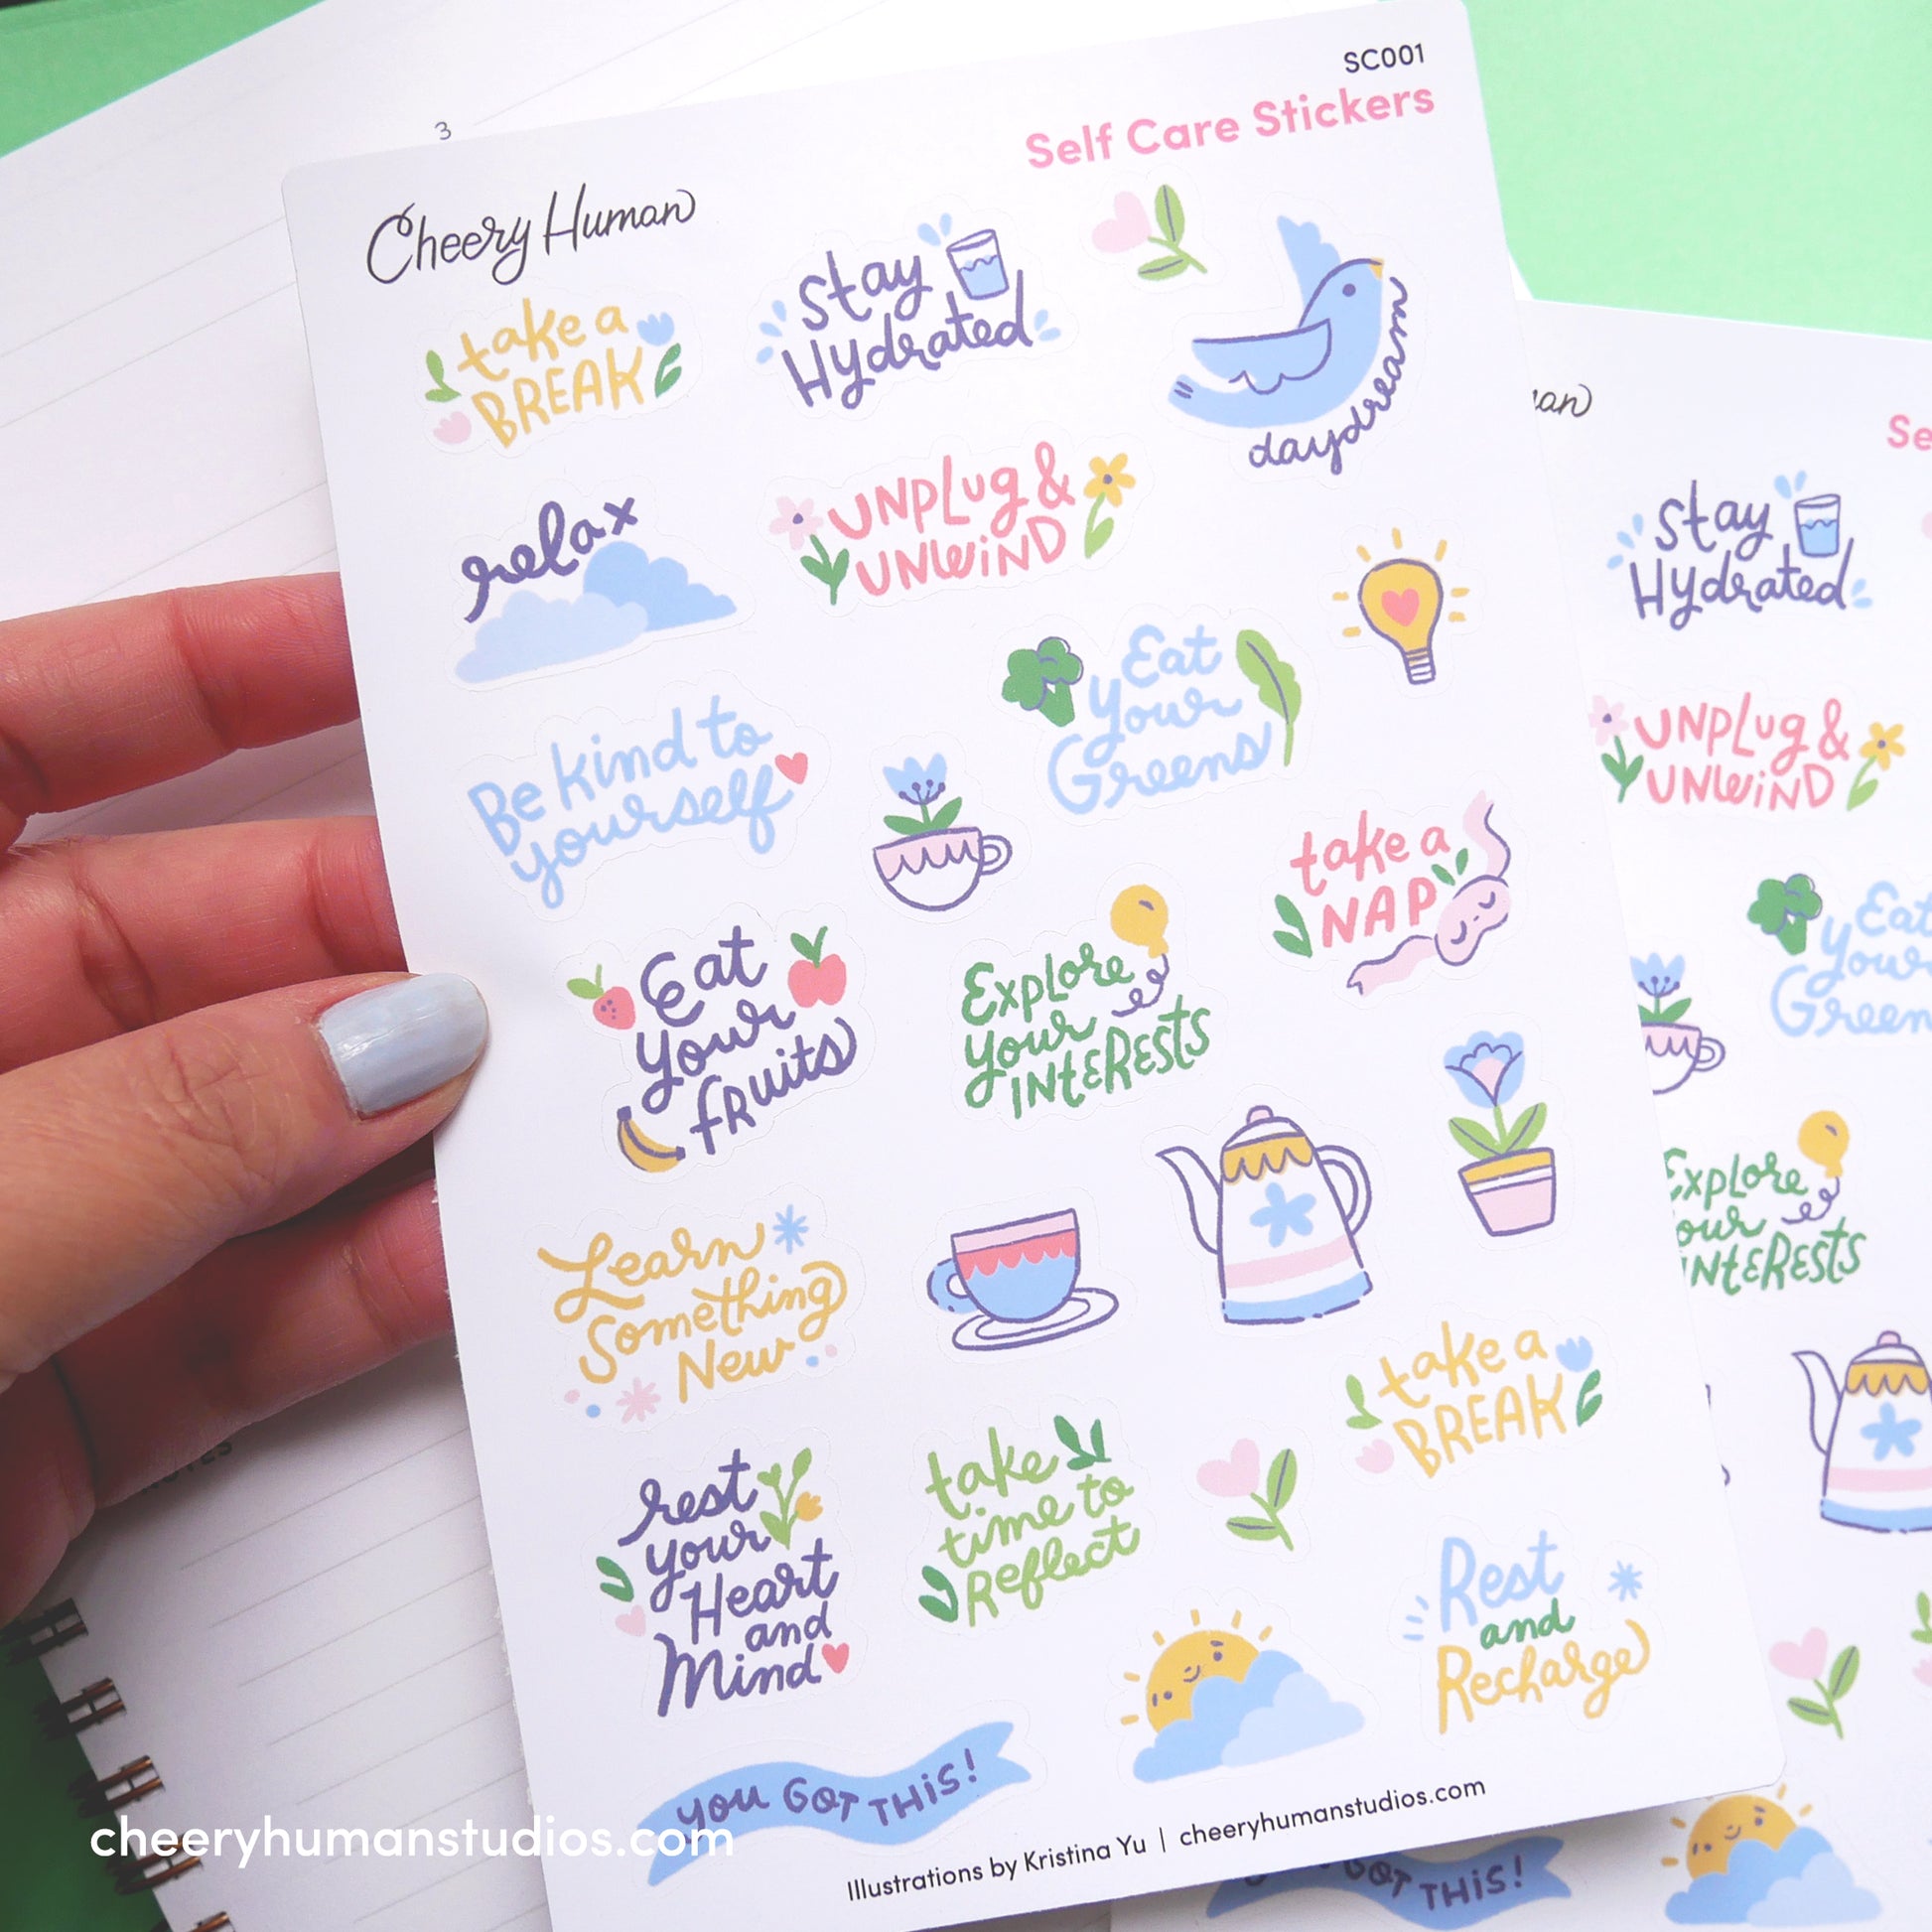 3
SC001
Self Care Stickers
Cheery Human
take a
BREAK
Stay
Hydrated
daydream
relax
UNPLUG &
UNWIND
Be kind to
yourself
Eat
Your
Greens
take a
NAP
Eat
Your
fruits
Explore
your
INTERESTS
Learn
Something
New
take a
BREAK
rest
your
Heart
and
Mind
take
time to
Reflect
Rest
and
Recharge
YOU GOT THIS!
Illustrations by Kristina Yu | cheeryhumanstudios.com
an
Se
Stay
Hydrated
UNPLUG &
UNWIND
Eat
Your
Green
Explore
our
INTERESTS
GOT THIS!
cheeryhumanstudios.com